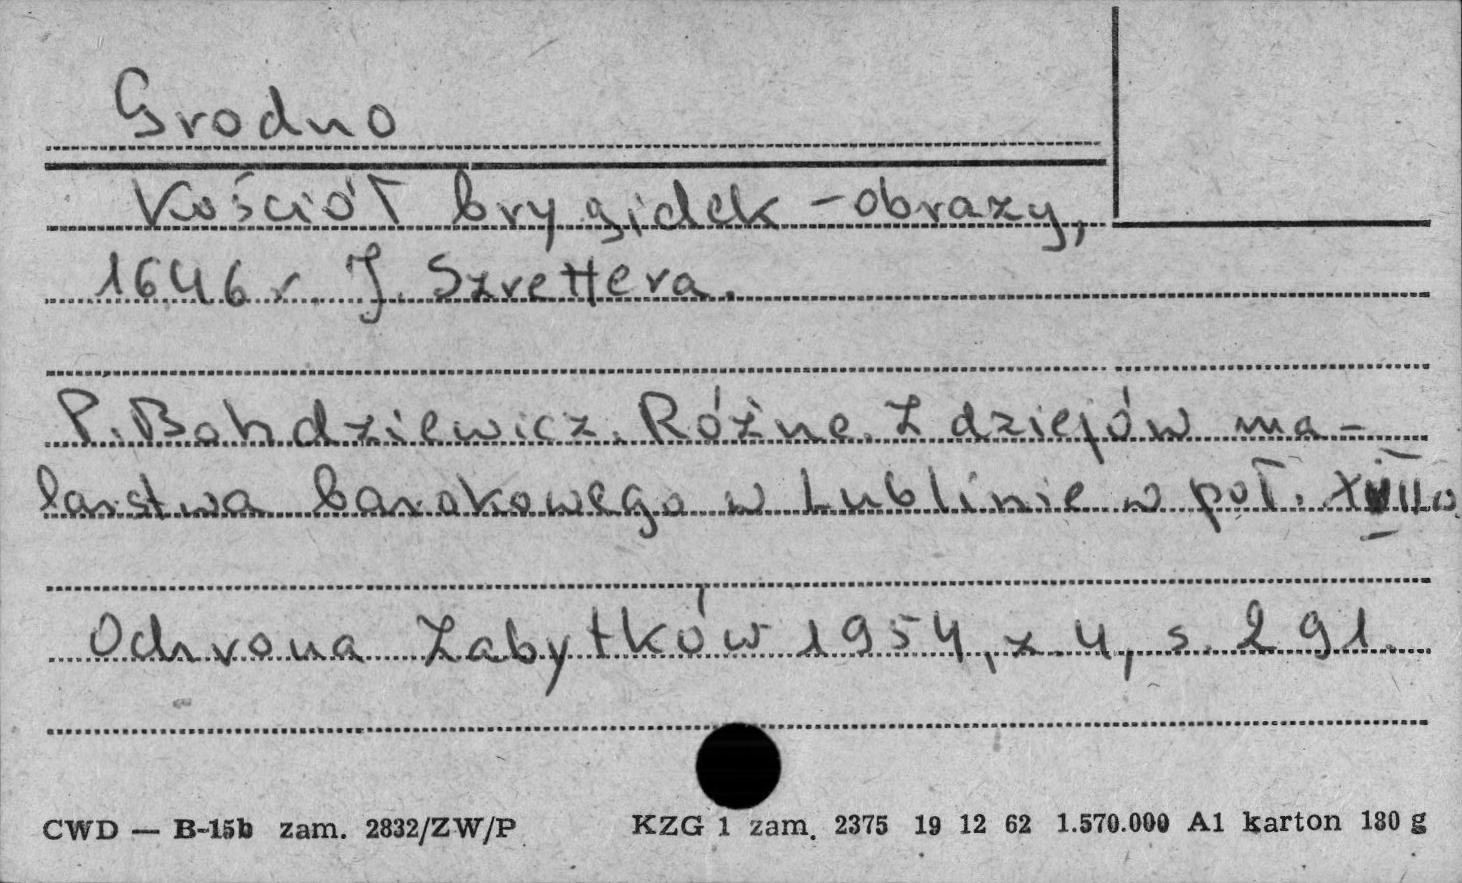 Grodno
Kościół brygidek - obrazy,
1646 r. J. Szrettera.
P. Bohdziewicz. Różne. Z dziejów ma-
larstwa barokowego w Lublinie w poł. XVII w.
Ochrona Zabytków 1954, z. 4, s. 291.
CWD — B-15b zam. 2832/ZW/P KZG 1 zam. 2375 19 12 62 1.570.000 A1 karton 180 g